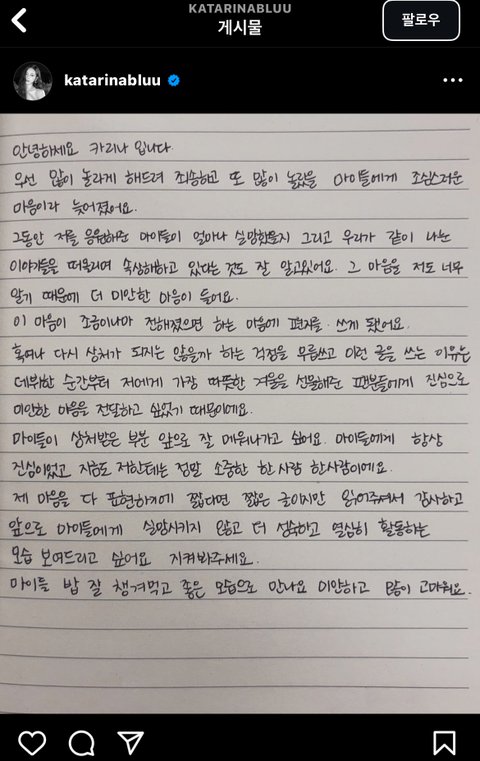 KATARINABLUU
게시물
팔로우
katarinabluu
안녕하세요 카리나 입니다.
우선 많이 놀라게 해드려 죄송하고 또 많이 놀랐을 마이들에게 조심스러운
마음이라 늦어졌어요.
그동안 저를 응원해준 마이들이 얼마나 실망했을지 그리고 우리가 같이 나눈
이야기들을 떠올리며 속상해하고 있다는 것도 잘 알고있어요. 그 마음을 저도 너무
알기 때문에 더 미안한 마음이 들어요.
이 마음이 조금이나마 전해졌으면 하는 마음에 편지를 쓰게 됐어요.
혹여나 다시 상처가 되지는 않을까 하는 걱정을 무릅쓰고 이런 글을 쓰는 이유는
데뷔한 순간부터 저에게 가장 따뜻한 겨울을 선물해준 팬분들에게 진심으로
미안한 마음을 전달하고 싶었기 때문이에요.
마이들이 상처받은 부분 앞으로 잘 메워나가고 싶어요. 마이들에게 항상
진심이었고 지금도 저한테는 정말 소중한 한사람 한사람이에요.
제 마음을 다 표현하기에 짧다면 짧은 글이지만 읽어주셔서 감사하고
앞으로 마이들에게 실망시키지 않고 더 성숙하고 열심히 활동하는
모습 보여드리고 싶어요 지켜봐주세요.
마이들 밥 잘 챙겨먹고 좋은 모습으로 만나요 미안하고 많이 고마워요.